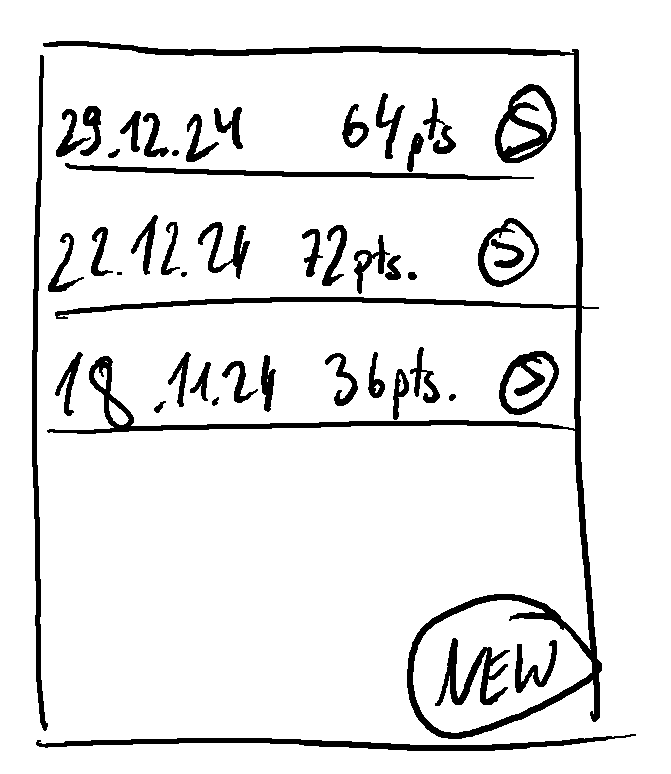 29.12.24 64pts S
22.12.24 72pts. S
18.11.24 36pts. S
NEW